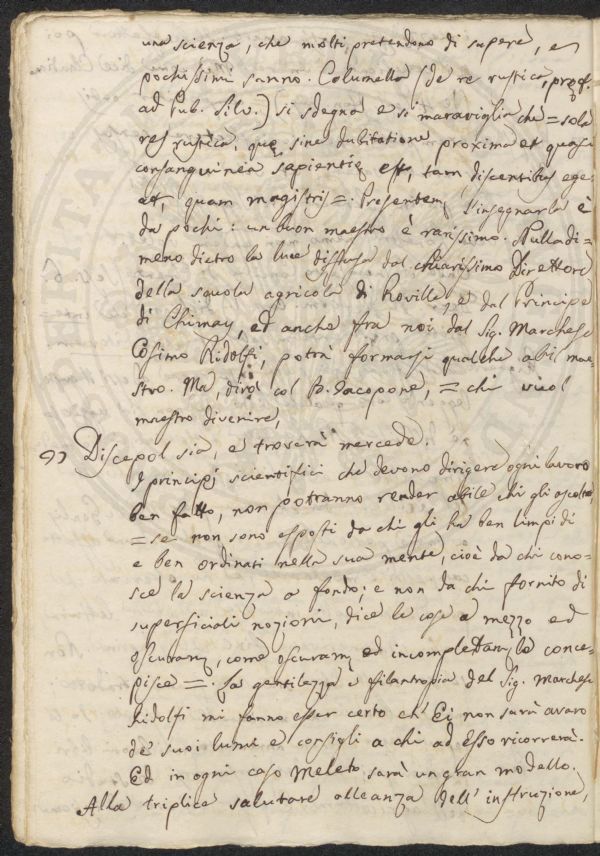 una scienza, che molti pretendono di sapere, e
pochissimi sanno. Columella (de re rustica, præf.
ad Pub. Silv.) si sdegna e si maraviglia chè = sola
res rustica, quę sine dubitatione proxima et quasi
consanguinea sapientię est, tam discentibus ege-
at, quam magistris =. Presentemẽ l'insegnarla è
da pochi: un buon maestro è rarissimo. Nulladi-
meno dietro la luce diffusa dal chiarissimo Direttore
della scuola agricola di Roville, e dal Principe
di Chimay, ed anche fra noi dal Sig. Marchese
Cosimo Ridolfi, potrà formarsi qualche abil mae-
stro. Ma, dirò col B. Jacopone, = chi vuol
maestro divenire,
Discepol sia, e troverà mercede.
I principj scientifici che devono dirigere ogni lavoro
ben fatto, non potranno render abile chi gli ascolta,
= se non sono esposti da chi gli ha ben limpidi
e ben ordinati nella sua mente, cioè da chi cono-
sce la scienza a fondo; e non da chi fornito di
superficiali nozioni, dice le cose a mezzo ed
oscuramẽ, come oscuramẽ ed incompletamẽ le conce-
pisce =. La gentilezza e filantropia del Sig. Marchese
Ridolfi mi fanno esser certo ch'Ei non sarà avaro
de' suoi lumi e consigli a chi ad Esso ricorrerà.
Ed in ogni caso Meleto sarà un gran modello.
Alla triplice salutare alleanza dell'instruzione,